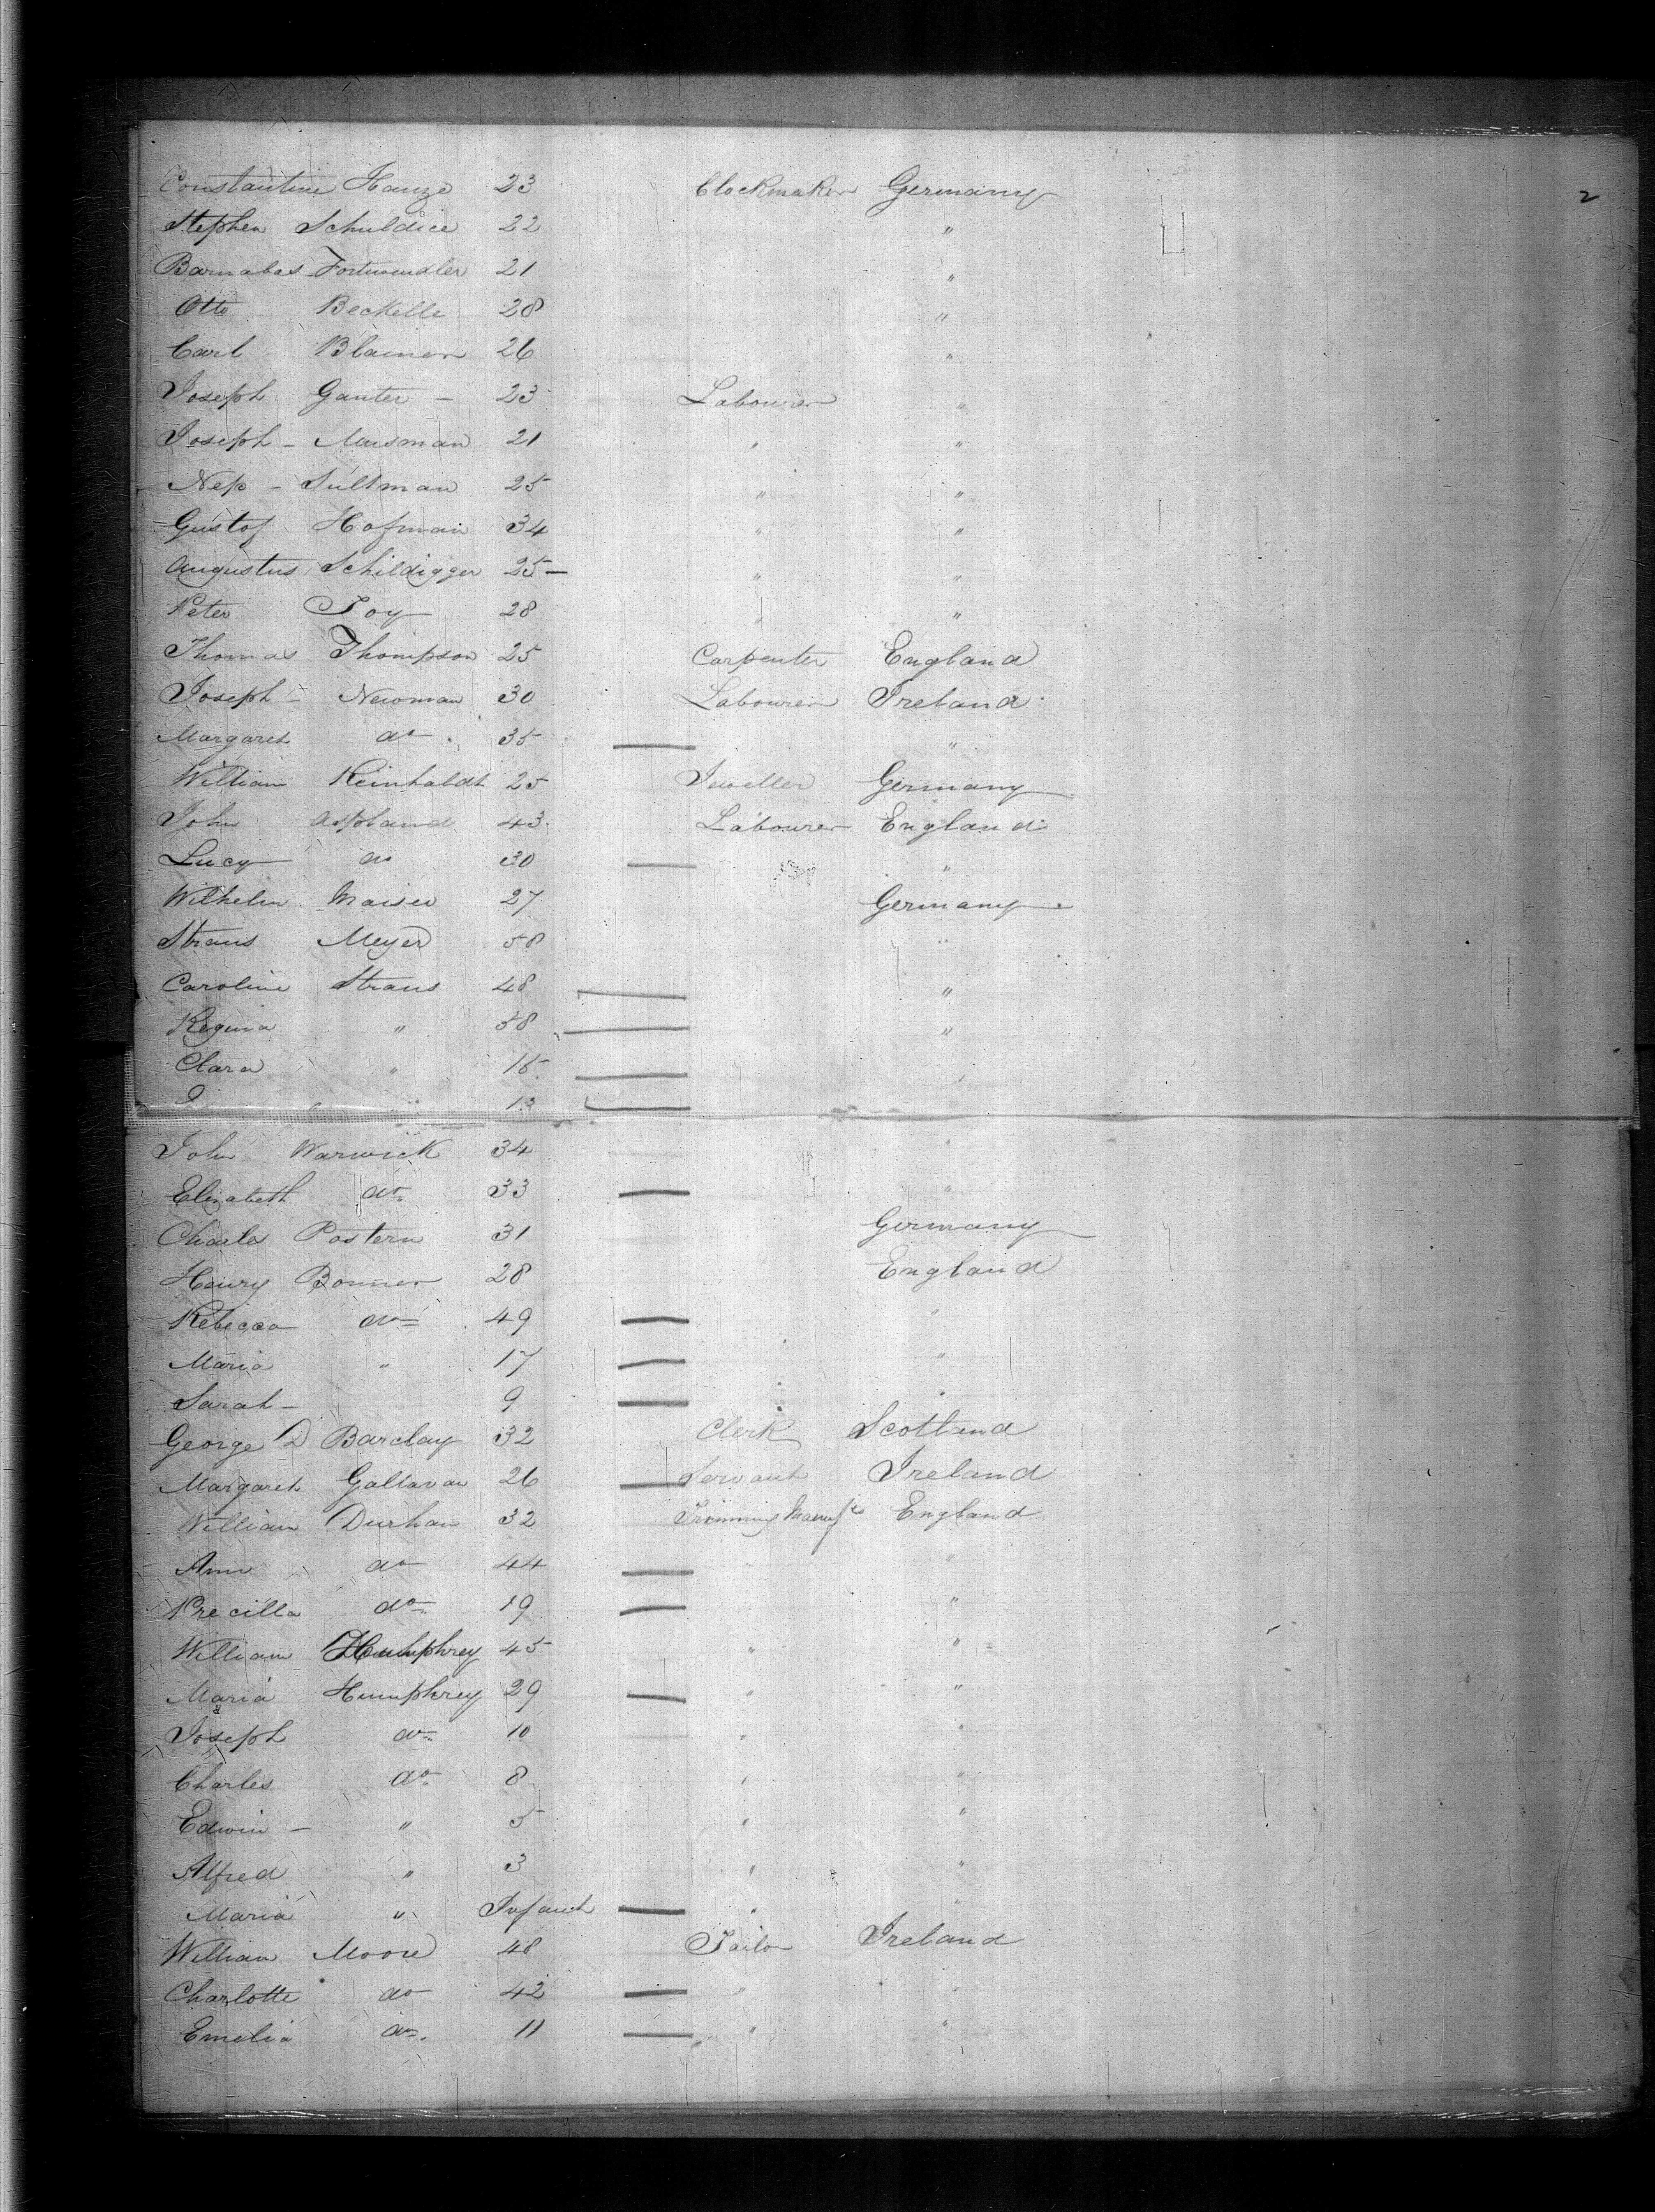 2
Constantine Hauze 23 Clockmaker Germany
Stephen Schuldice 22 "
Barnabas Fortwendler 21 "
Otto Beckelle 28 "
Carl Blainer 26 "
Joseph Ganter - 23 Labourer "
Joseph - Musman 21 " "
Nep - Sultman 25 " "
Gustof Hofman 34 " "
Augustus Schildigger 25 — " "
Peter Joy 28 " "
Thomas Thompson 25 Carpenter England
Joseph - Newman 30 Labourer Ireland
Margaret do 35 — "
William Reinhaldt 25 Jeweller Germany
John Aspland 43 Labourer England
Lucy do 30 — "
Wilhelm Maiser 27 Germany
Straus Meyer 58 "
Caroline Straus 48 — "
Regina " 58 — "
Clara " 15 — "
" 13 —
John Warwick 34 "
Elizabeth do 33 — "
Charles Postern 31 Germany
Henry Bonner 28 England
Rebecca do 49 — "
Maria " 17 — " "
Sarah - 9 — "
George D Barclay 32 Clerk Scotland
Margaret Gallavan 26 — Servant Ireland
William Durhan 32 Trimming Manuf England
Ann do 44 — "
Precilla do 19 — "
William Humphrey 45 " "
Maria Humphrey 29 — " "
Joseph do 10 " "
Charles do 8 " "
Edwin - " 5 " "
Alfred " 3 " "
Maria " Infant — " "
William Moore 48 Tailor Ireland
Charlotte do 42 — " "
Emelia do 11 — " "